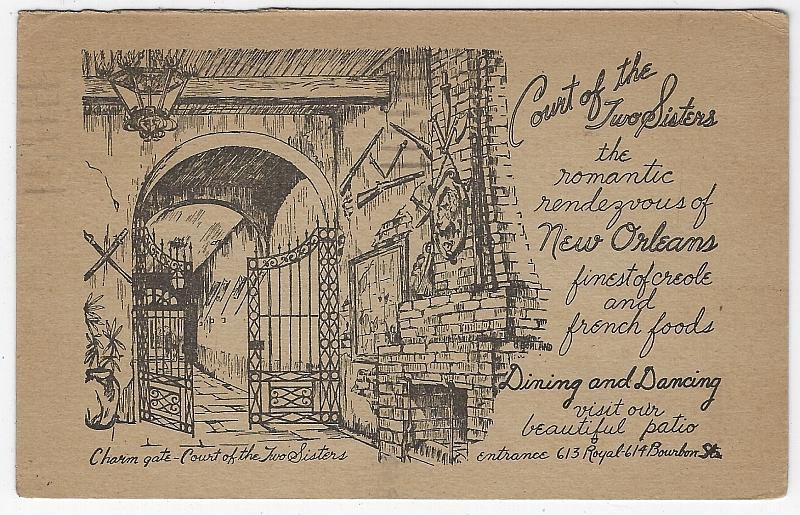 Court of the
Two Sisters
the
romantic
rendezvous of
New Orleans
finest of creole
and
french foods
Dining and Dancing
visit our
beautiful patio
entrance 613 Royal-614 Bourbon Sts.
Charm gate - Court of the Two Sisters